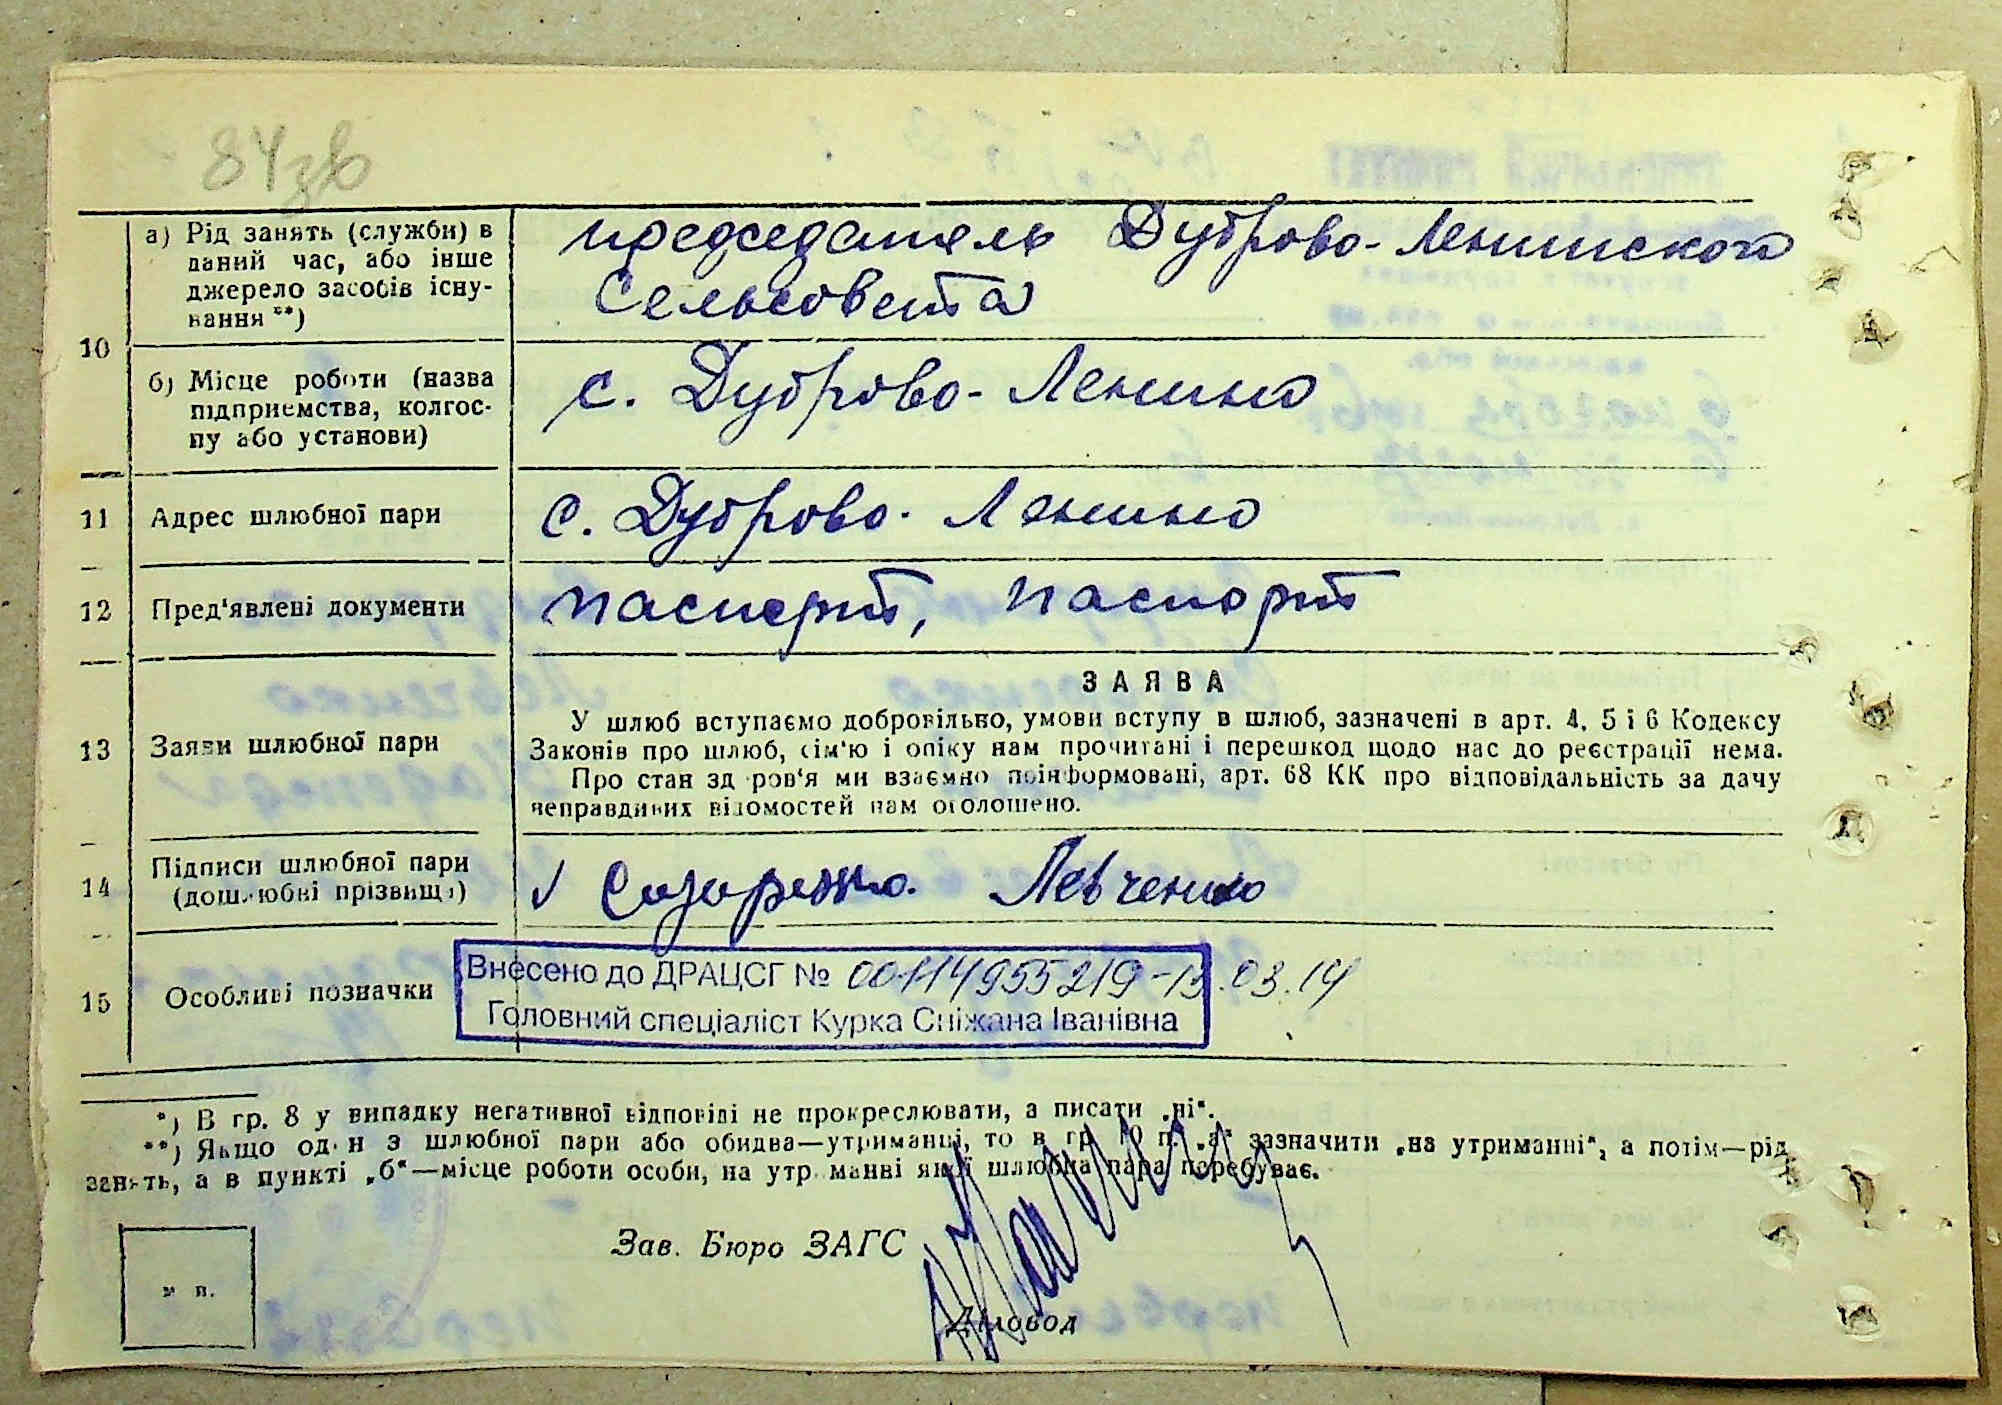 84зв
10
а) Рід занять (служби) в
даний час, або інше
джерело засобів існу-
вання **)
председатель Дуброво-Ленинского
Сельсовета
б) Місце роботи (назва
підприємства, колгос-
пу або установи)
с. Дуброво-Ленино
11 Адрес шлюбної пари с. Дуброво-Ленино
12 Пред'явлені документи паспорт, паспорт
13 Заяви шлюбної пари
ЗАЯВА
У шлюб вступаємо добровільно, умови вступу в шлюб, зазначені в арт. 4, 5 і 6 Кодексу
Законів про шлюб, сім'ю і опіку нам прочитані і перешкод щодо нас до реєстрації нема.
Про стан здоров'я ми взаємно поінформовані, арт. 68 КК про відповідальність за дачу
неправдивих відомостей нам оголошено.
14 Підписи шлюбної пари
(дошлюбні прізвища)
Левченко
15 Особливі позначки
Внесено до ДРАЦСГ № 00114955219-13.03.14
Головний спеціаліст Курка Сніжана Іванівна
*) В гр. 8 у випадку негативної відповіді не прокреслювати, а писати „ні“.
**) Якщо один з шлюбної пари або обидва—утриманці, то в гр. 10 п. „а“ зазначити „на утриманні“, а потім—рід
занять, а в пункті „б“—місце роботи особи, на утриманні якої шлюбна пара перебуває.
Зав. Бюро ЗАГС
м п.
Діловод